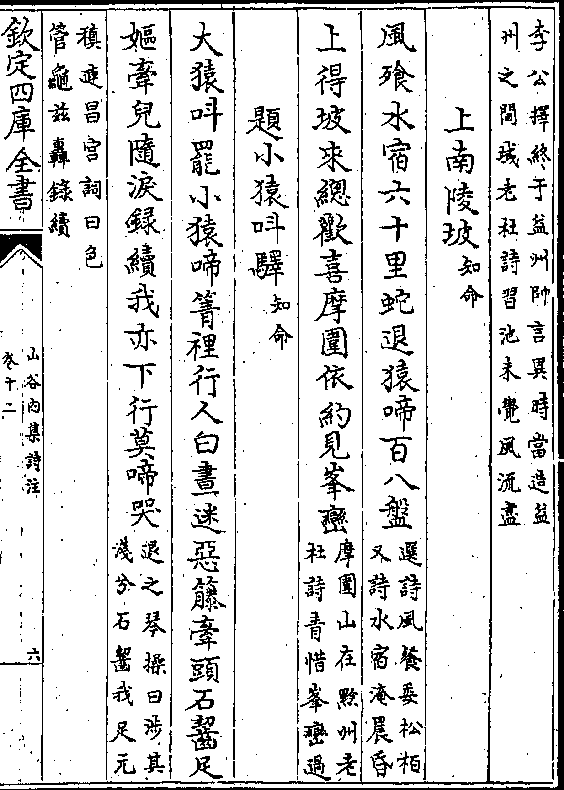 李公擇終于益州帥言異時當造益
州之間哉老杜詩習池未覺風流盡
上南陵坡知命
風飱水宿六十里蛇退猿啼百八盤
上得坡來總歡喜摩圍依約見峯巒
選詩風餐委松栢
又詩水宿淹晨昏
摩圍山在黔州老
杜詩青惜峯巒過
題小猿叫驛知命
大猿叫罷小猿啼箐裡行人白晝迷惡籐牽頭石齧足
嫗牽兒隨淚錄續我亦下行莫啼哭
退之琴操曰涉其
淺兮石齧我足元
稹連昌宫詞曰色
管龜兹轟錄續
欽定四庫全書
山谷内集詩注
卷十二
六